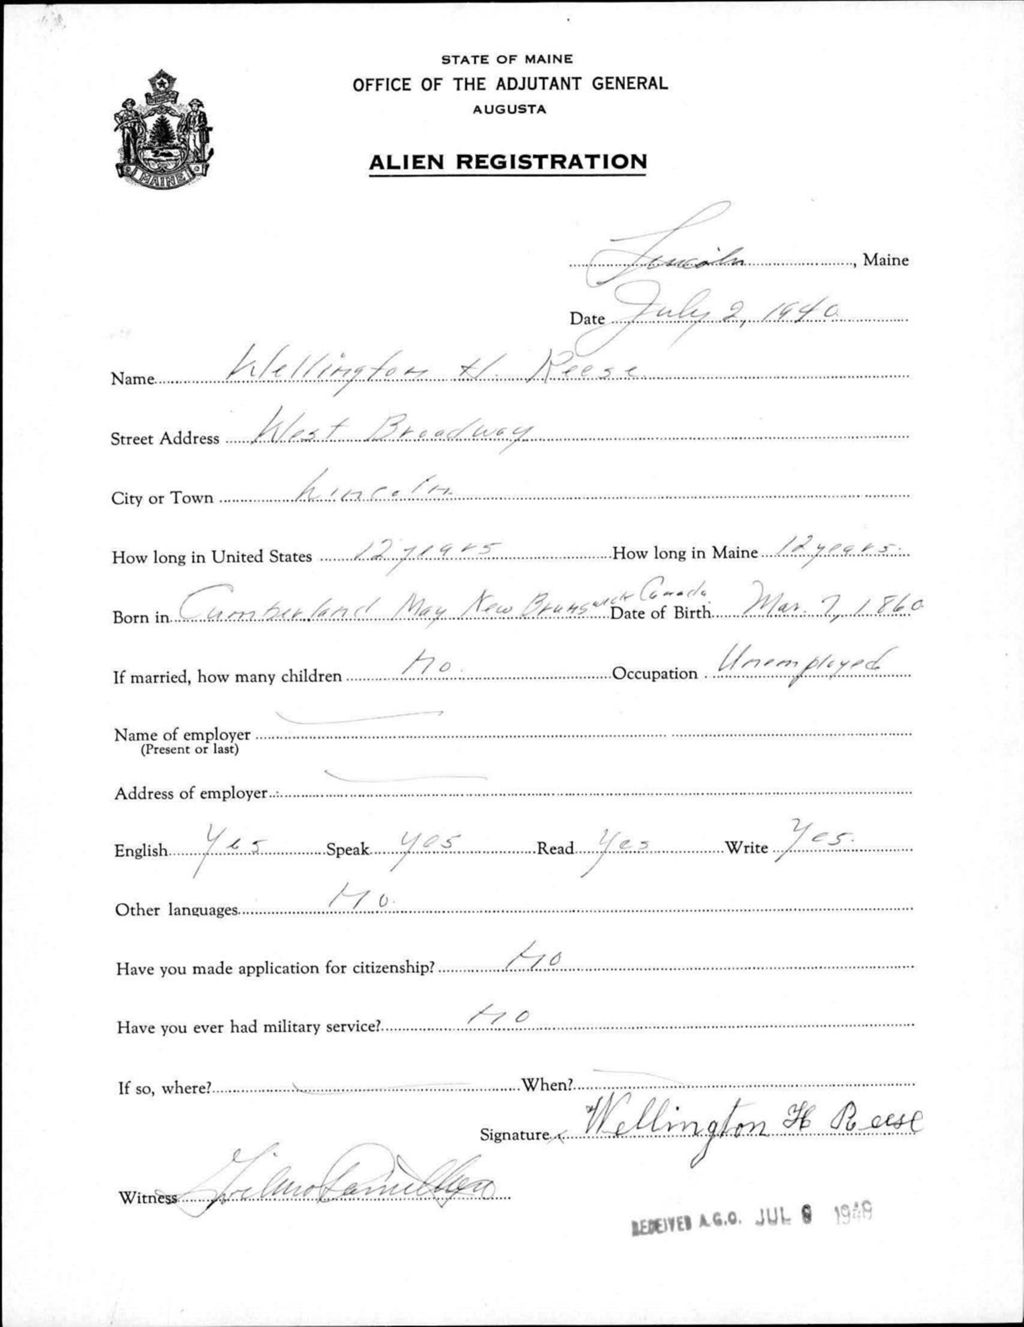 STATE OF MAINE
OFFICE OF THE ADJUTANT GENERAL
AUGUSTA
ALIEN REGISTRATION
MAINE
Lincoln, Maine
Date July 2, 1940
Name Wellington H. Reese
Street Address West Broadway
City or Town Lincoln
How long in United States 12 years How long in Maine 12 years.
Born in Cumberland Bay New Brunswick Canada Date of Birth Mar. 7, 1860
If married, how many children No. Occupation Unemployed
Name of employer
(Present or last)
Address of employer
English Yes Speak yes Read Yes Write Yes.
Other languages No.
Have you made application for citizenship? No
Have you ever had military service? No
If so, where? When?
Signature Wellington H Reese
Witness
RECEIVED A.G.O. JUL 9 1940